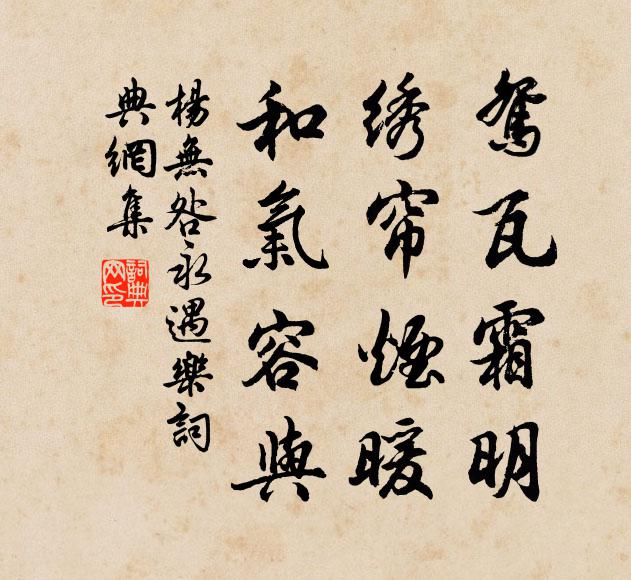 鸳瓦霜明
绣帘煙暖
和氣容與
楊無咎永遇樂詞
典網集
詞典
网印